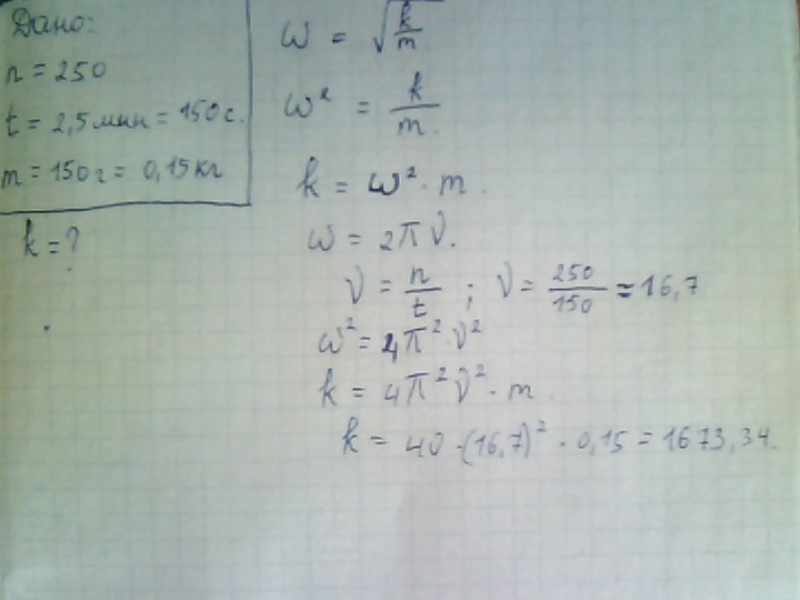 Дано:
n = 250
t = 2,5 мин = 150 с.
m = 150 г = 0,15 кг
k = ?
ω = √k/m
ω² = k/m.
k = ω² · m.
ω = 2πν.
ν = n/t ; ν = 250/150 ≈ 16,7
ω² = 4π² · ν²
k = 4π²ν² · m.
k = 40 · (16,7)² · 0,15 = 1673,34.